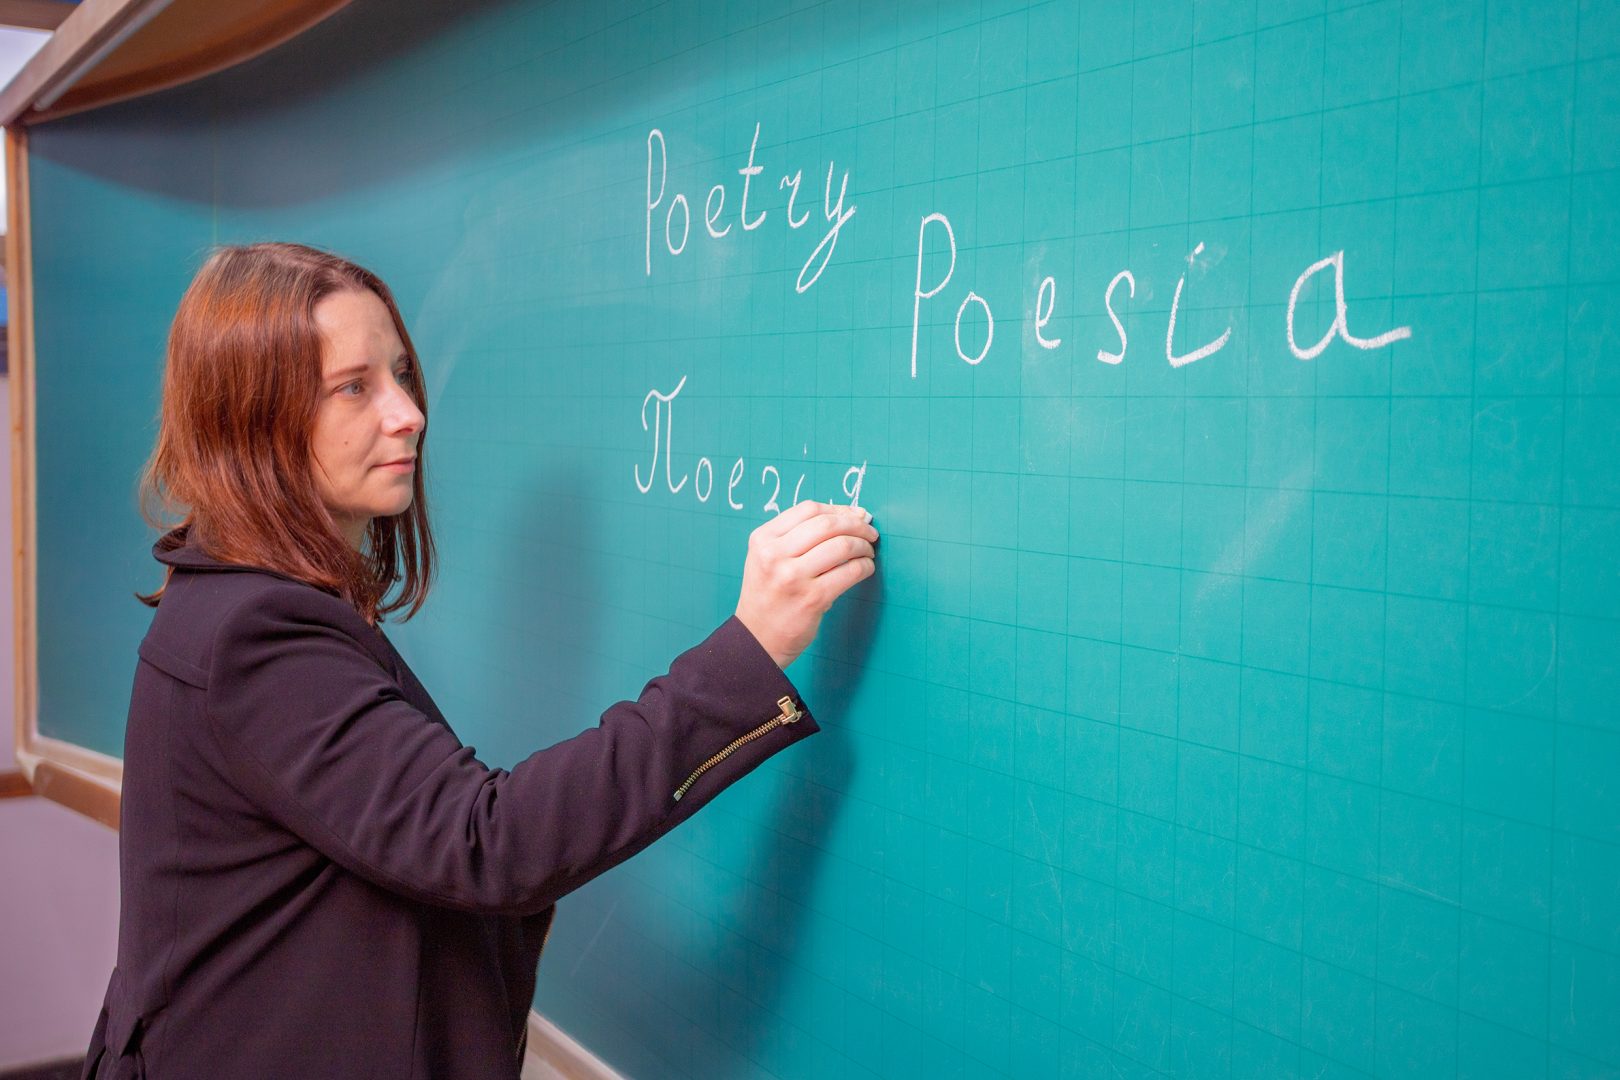 Poetry
Poesia
Поезія